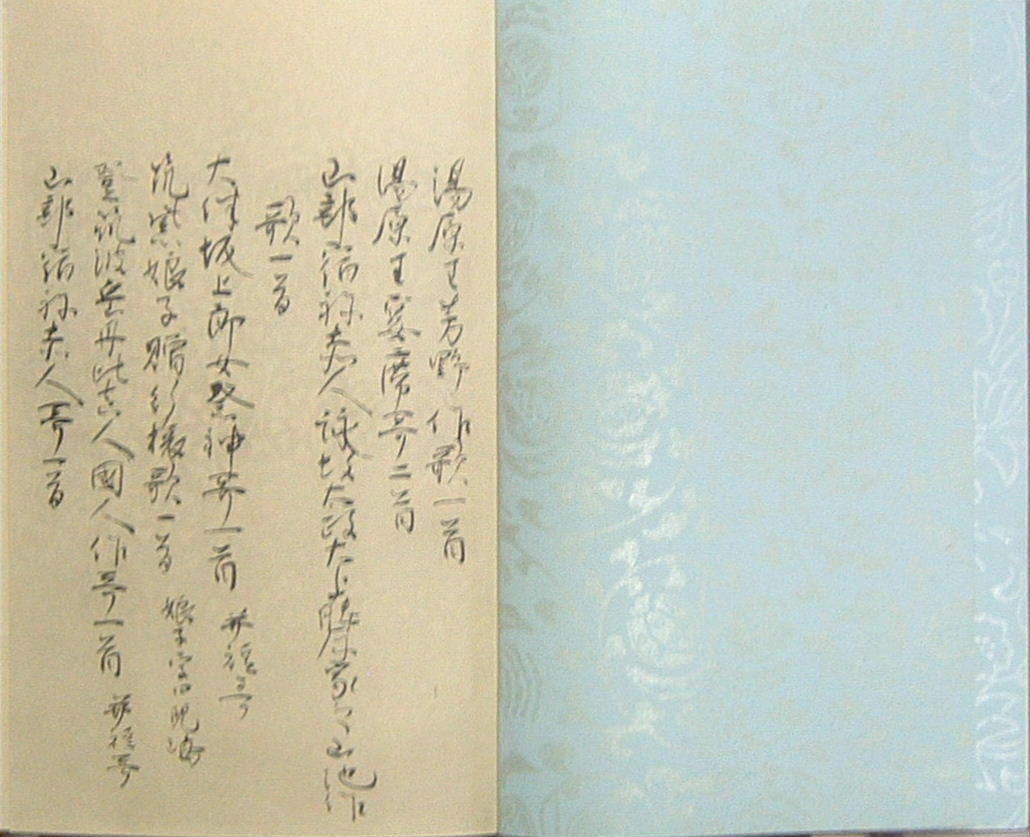 湯原王芳野作歌一首
湯原王宴席哥二首
山部宿祢赤人詠故太政大臣藤原家之山池作
歌一首
大伴坂上郎女祭神哥一首 并短哥
筑紫娘子贈行旅歌一首 娘子字曰児嶋
登筑波岳丹比真人國人作哥一首 并短哥
山部宿祢赤人哥一首